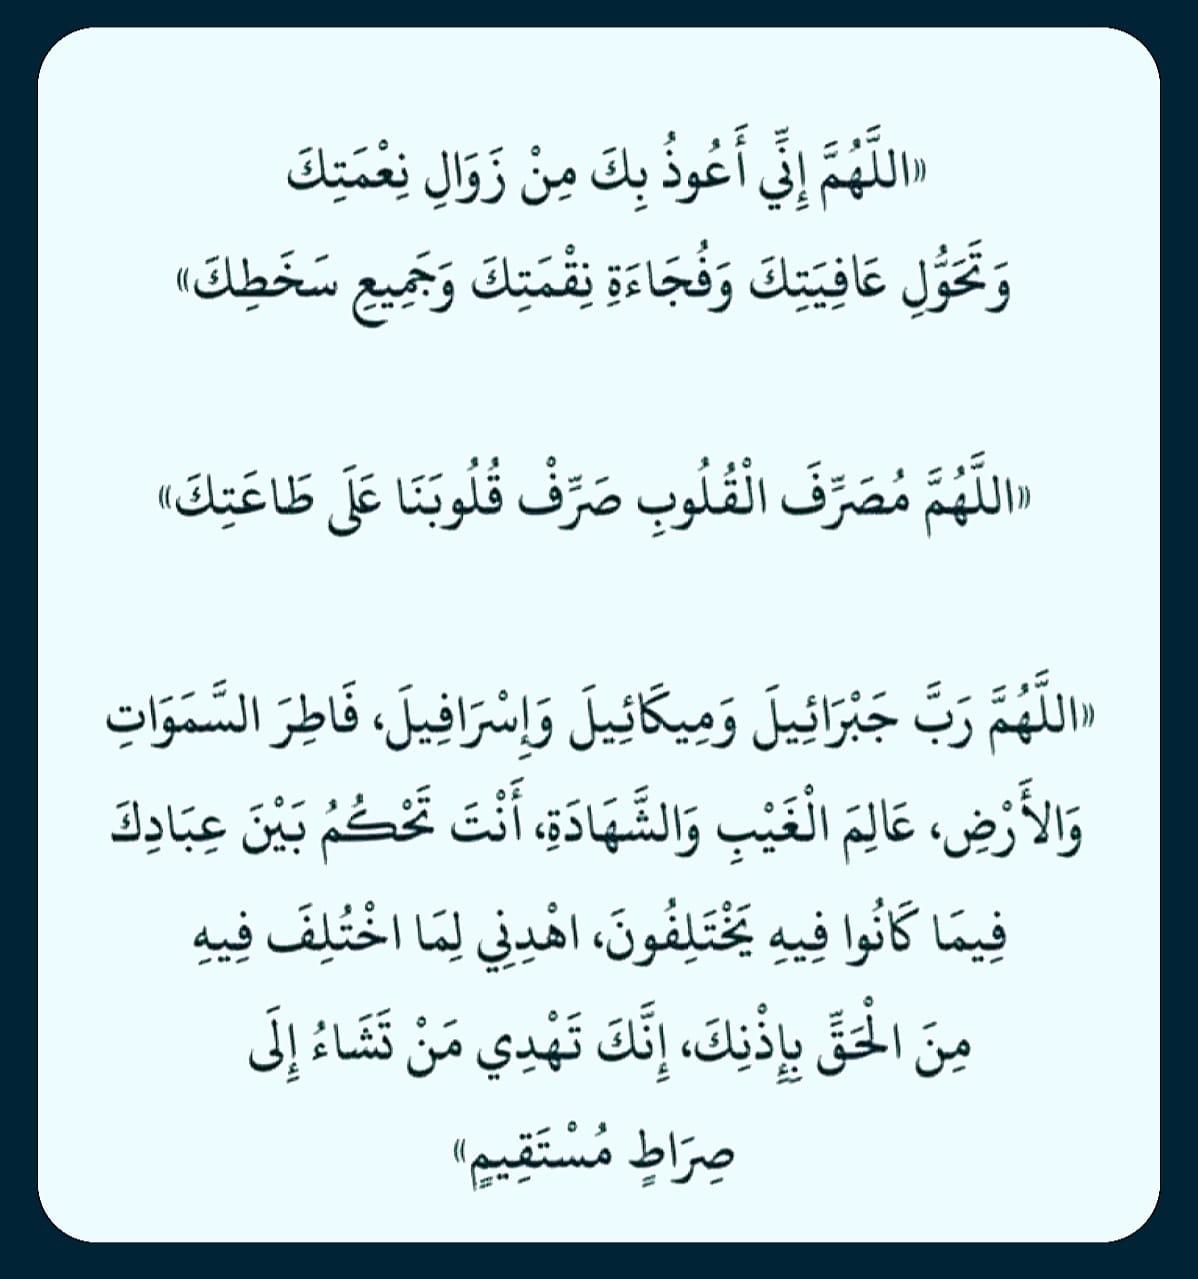 «اللَّهُمَّ إِنِّي أَعُوذُ بِكَ مِنْ زَوَالِ نِعْمَتِكَ
وَتَحَوُّلِ عَافِيَتِكَ وَفُجَاءَةِ نِقْمَتِكَ وَجَمِيعِ سَخَطِكَ»
«اللَّهُمَّ مُصَرِّفَ الْقُلُوبِ صَرِّفْ قُلُوبَنَا عَلَى طَاعَتِكَ»
«اللَّهُمَّ رَبَّ جَبْرَائِيلَ وَمِيكَائِيلَ وَإِسْرَافِيلَ، فَاطِرَ السَّمَوَاتِ
وَالأَرْضِ، عَالِمَ الْغَيْبِ وَالشَّهَادَةِ، أَنْتَ تَحْكُمُ بَيْنَ عِبَادِكَ
فِيمَا كَانُوا فِيهِ يَخْتَلِفُونَ، اهْدِنِي لِمَا اخْتُلِفَ فِيهِ
مِنَ الْحَقِّ بِإِذْنِكَ، إِنَّكَ تَهْدِي مَنْ تَشَاءُ إِلَى
صِرَاطٍ مُسْتَقِيمٍ»